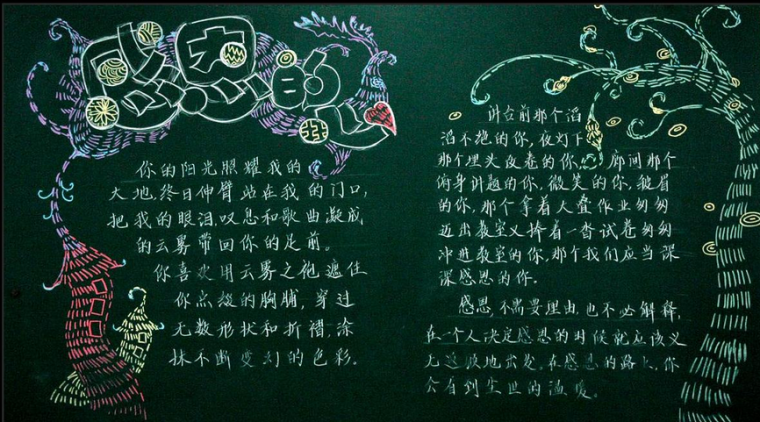 感恩
你的阳光照耀我的
大地,终日伸臂站在我的门口,
把我的眼泪,叹息和歌曲凝成
的云雾带回你的足前。
你喜欢用云雾之袍遮住
你点缀的胸脯,穿过
无数形状和折褶,涂
抹不断变幻的色彩。
讲台前那个滔
滔不绝的你,夜灯下
那个埋头改卷的你,廊间那个
俯身讲题的你,微笑的你,皱眉
的你,那个拿着大叠作业匆匆
迈出教室又拎着一沓试卷匆匆
冲进教室的你,那个我们应当深
深感恩的你。
感恩,不需要理由,也不必解释,
在一个人决定感恩的时候就应该义
无返顾地出发。在感恩的路上,你
会看到尘世的温暖。